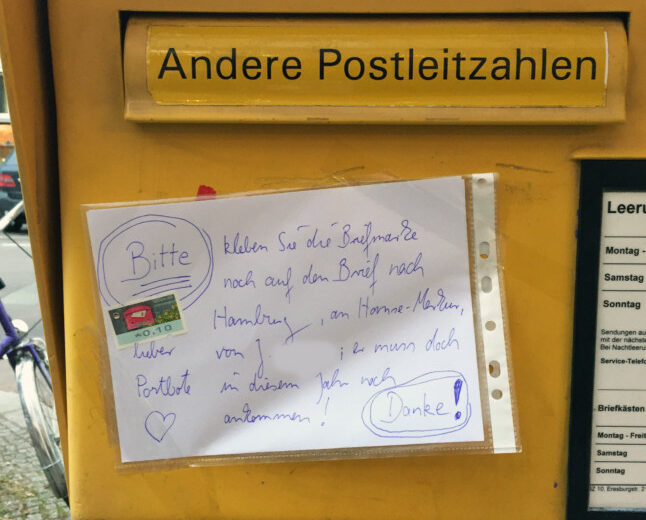 Andere Postleitzahlen
Bitte kleben Sie die Briefmarke
noch auf den Brief nach
Hamburg, an
*0,10
lieber von J. ; er muss doch
Postbote in diesem Jahr noch
ankommen!
Danke!
Leeru
Montag -
Samstag
Sonntag
Sendungen au
mit der nächste
Bei Nachtleeru
Service-Telefo
Briefkästen
Montag - Freit
Samstag
Sonntag